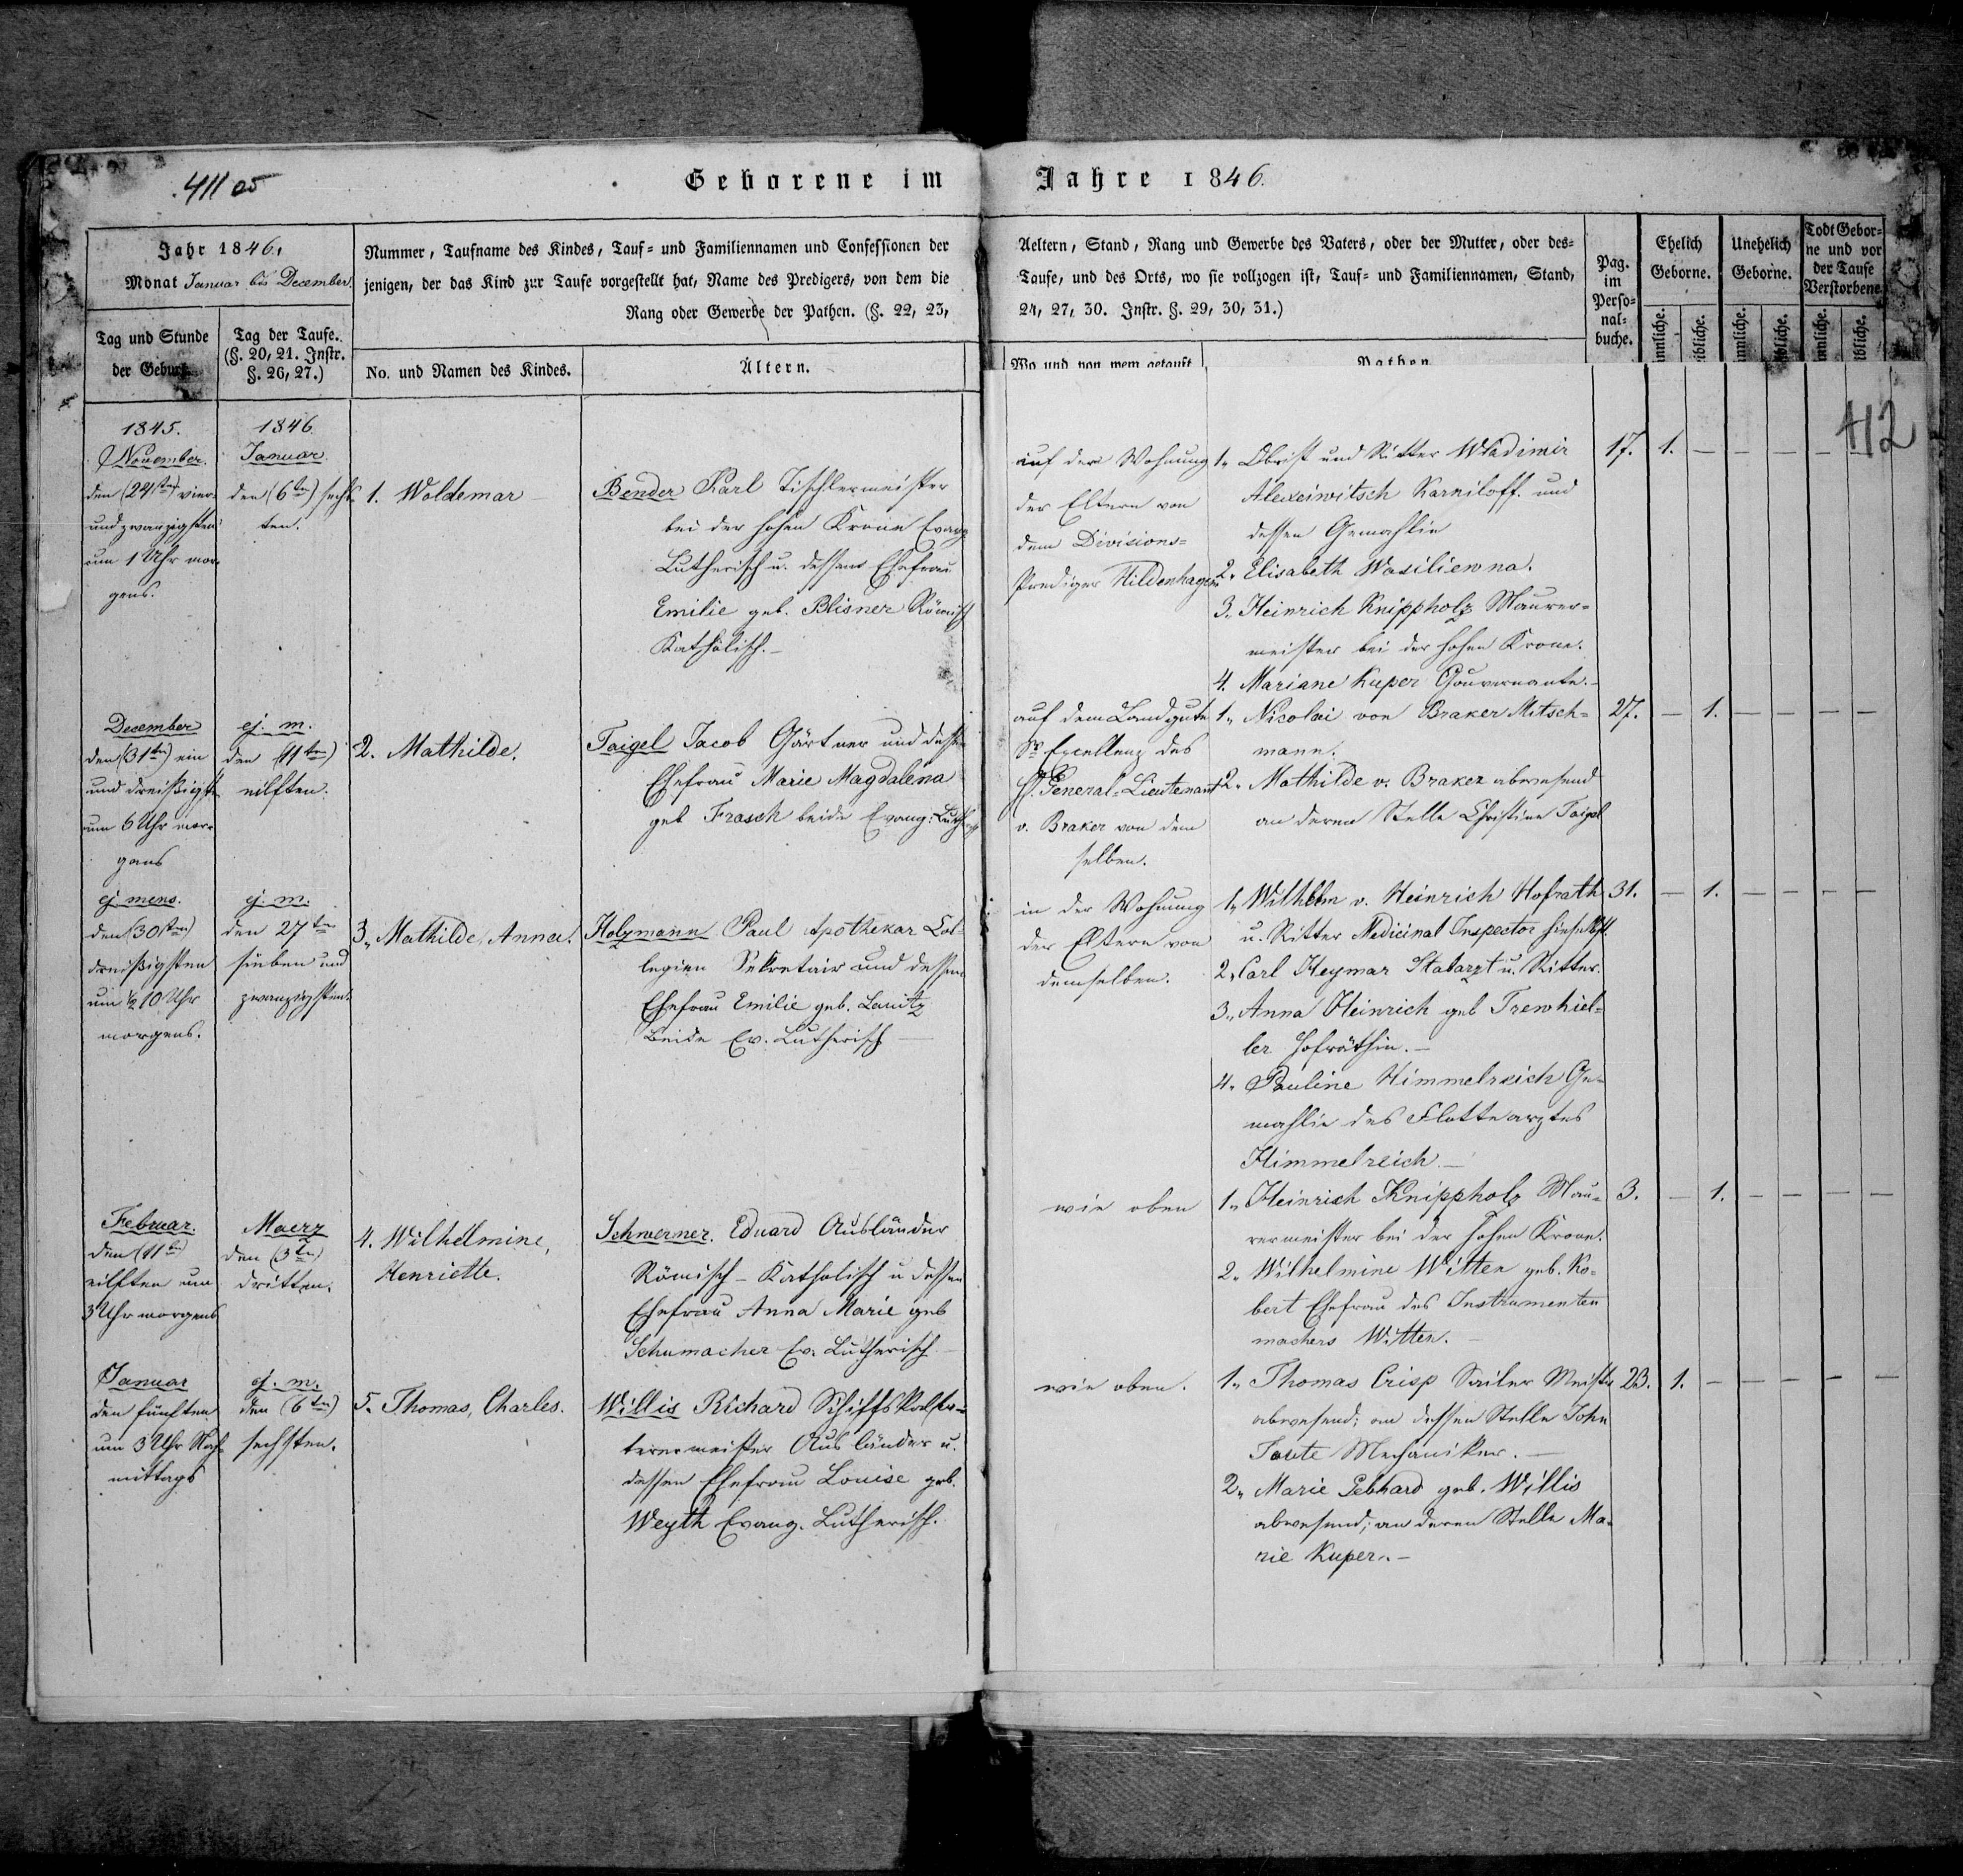 41105
Geborene im Jahre 1846.
Jahr 1846,
Monat Januar bis December.
Nummer, Taufname des Kindes, Tauf- und Familiennamen und Confessionen der
jenigen, der das Kind zur Taufe vorgestellt hat, Name des Predigers, von dem die
Rang oder Gewerbe der Pathen. (§. 22, 23,
Tag und Stunde
der Geburt.
Tag der Taufe.
(§. 20, 21. Instr.
§. 26, 27.)
No. und Namen des Kindes.
Ältern.
Aeltern, Stand, Rang und Gewerbe des Vaters, oder der Mutter, oder des-
Taufe, und des Orts, wo sie vollzogen ist, Tauf- und Familiennamen, Stand,
24, 27, 30. Instr. §. 29, 30, 31.)
Wo und von wem getauft
Pathen
Pag.
im
Perso-
nal-
buche.
Ehelich
Geborne.
Unehelich
Geborne.
Todt Gebor-
ne und vor
der Taufe
Verstorbene
412
1845.
November.
den (24sten) vier-
und zwanzigsten
um 1 Uhr mor-
gens.
1846
Januar
den (6ten) sechs
ten.
1. Woldemar
Bender Karl Tischlermeister
bei der hohen Krone Evang
Lutherisch u. dessen Ehefrau
Emilie geb. Blisner Römisch
Katholisch.-
auf der Wohnung
der Eltern von
dem Divisions-
Prediger Hildenhagen
1. Obrist und Ritter Wladimir
Alexeiwitsch Karniloff. und
dessen Gemahlin
2. Elisabeth Wasiliewna.
3. Heinrich Knippholz Maurer-
meister bei der hohen Krone.
4. Mariane Kuper Gouvernante.-
17. 1. - - - -
December
den (31ten) ein
und dreißigsten
um 6 Uhr mor-
gens
ej. m.
den (11ten)
eilften.
2. Mathilde.
Taigel Jacob Gärtner und dessen
Ehefrau Marie Magdalena
geb Frasch beide Evang: Luth
auf dem Landgute
Sr Excellenz des
H. General-Lieutenant
v. Braker von dem
selben.
1. Nicolai von Braker Mitsch-
mann.
2. Mathilde v. Braker abwesend
an deren Stelle Christine Taigel
27. - 1. - - - -
ej. mens.
den (30sten)
dreißigsten
um ½ 10 Uhr
morgens.
ej. m.
den 27ten
sieben und
zwanzigsten.
3. Mathilde, Anna.
Holzmann Paul Apothekar Col-
legien Sekretair und dessen
Ehefrau Emilie geb. Lanitz
Beide Ev. Lutherisch -
in der Wohnung
der Eltern von
demselben.
1. Wilhelm v. Heinrich Hofrath
u. Ritter Medicinal Inspector hieselbst.
2. Carl Heymar Stabarzt u. Ritter.
3. Anna Heinrich geb Trewhiel-
ler Hofräthin.-
4. Pauline Himmelreich Ge-
mahlin des Flottearztes
Himmelreich.-
31. - 1. - - - -
Februar.
den (11ten)
eilften um
3 Uhr morgens
Maerz
den (3ten)
dritten.
4. Wilhelmine,
Henriette.
Schwerner. Eduard Ausländer
Römisch-Katholisch u dessen
Ehefrau Anna Marie geb
Schumacher Ev. Lutherisch
wie oben
1. Heinrich Knippholz Mau-
rermeister bei der hohen Krone.
2. Wilhelmine Witten geb. Ko-
bert Ehefrau des Instrumenten
machers Witten.-
3. - 1. - - - -
Januar
den fünften
um 3 Uhr Nach
mittags
ej. m.
den (6ten)
sechsten.
5. Thomas, Charles.
Willis Richard Schiffskalfa-
terermeister Ausländer u.
dessen Ehefrau Louise geb.
Weyth Evang. Lutherisch.
wie oben.
1. Thomas Crisp Sailer Meister
abwesend; an dessen Stelle John
Mechaniker.-
2. Marie Gebhard geb. Willis
abwesend; an deren Stelle Ma-
rie Kuper.-
23. 1. - - - - -